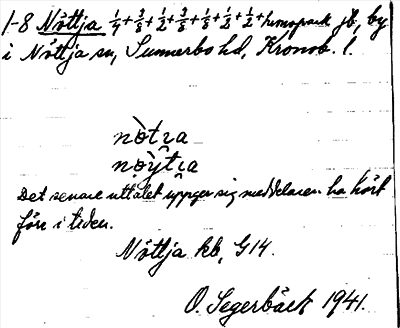 1-8 Nöttja 1/4+3/8+1/2+3/8+1/8+1/2+1/2+ jb, by
i Nöttja sn, Sunnerbo hd, Kronob. l.
nòtıa
nòÿtıa
Det senare uttalet uppger sig meddelaren ha hört
förr i tiden.
Nöttja kb, G14.
O. Segerbäck 1941.